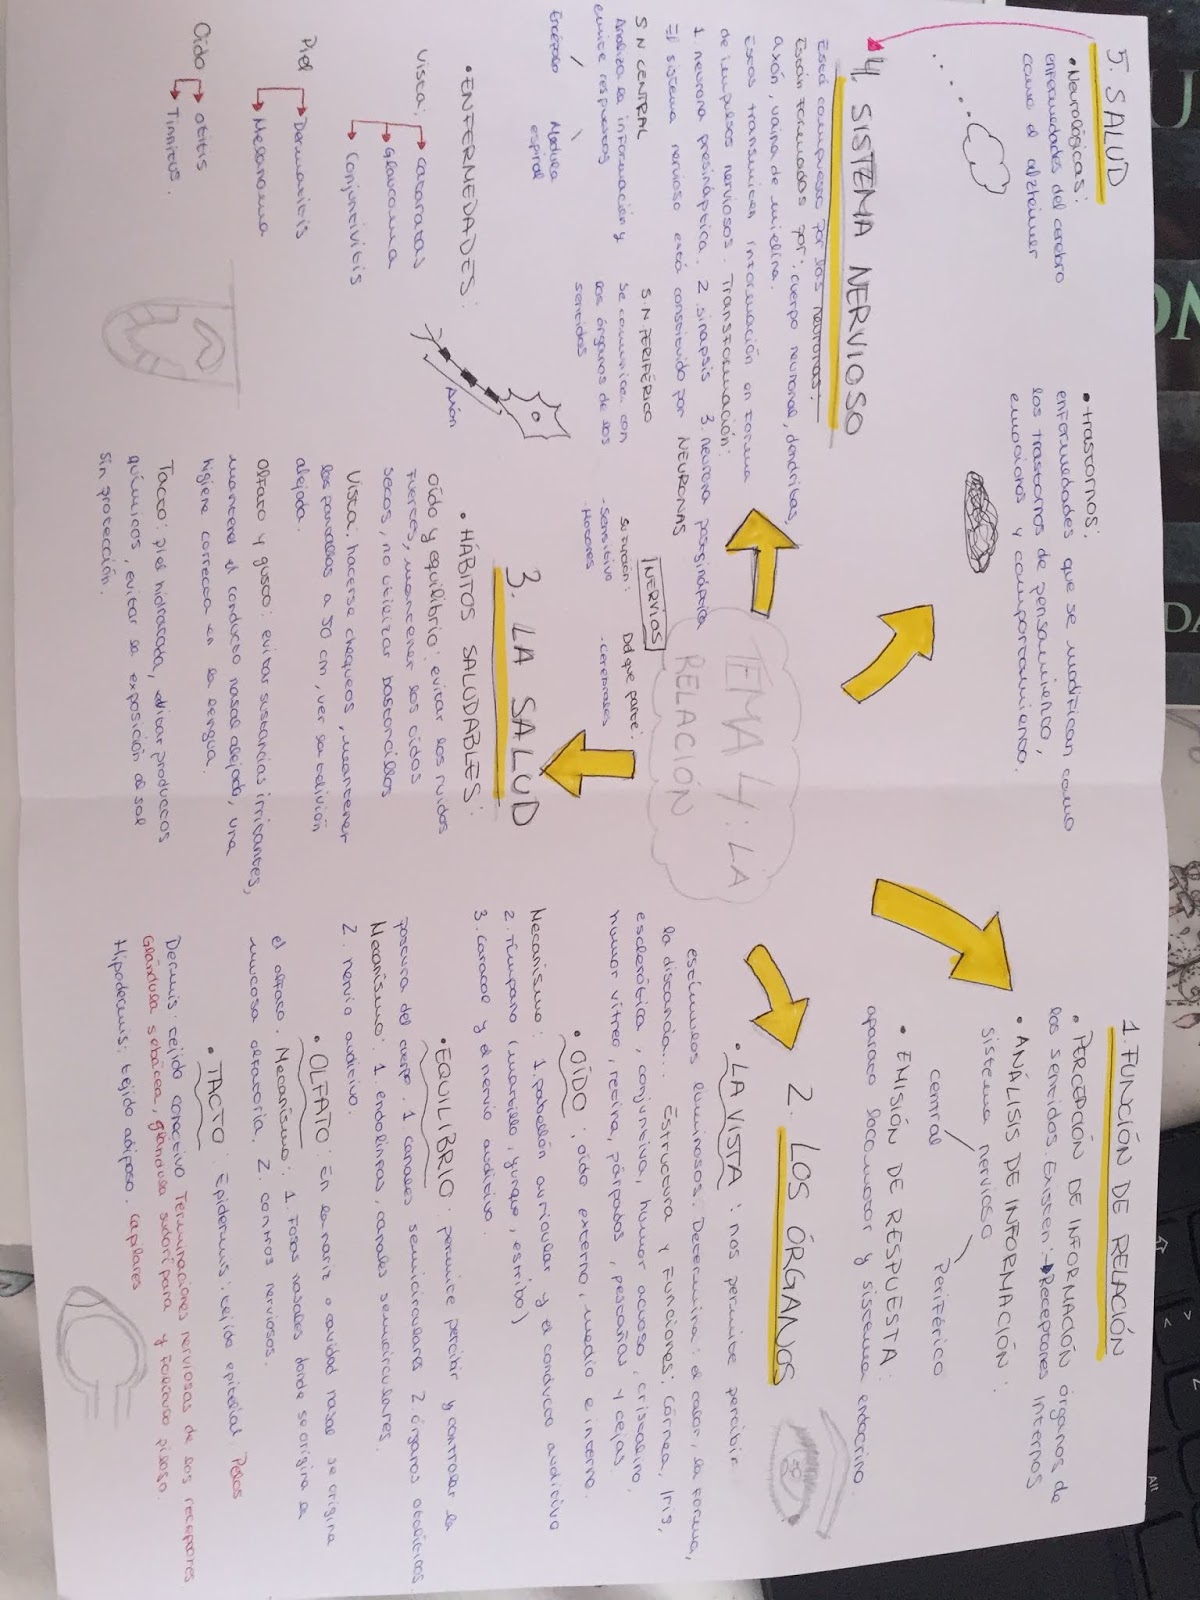 TEMA 4: LA
RELACIÓN
1. FUNCIÓN DE RELACIÓN
• PERCEPCIÓN DE INFORMACIÓN órganos de
los sentidos. Existen: → Receptores internos
• ANÁLISIS DE INFORMACIÓN:
sistema nervioso
central
Periférico
• EMISIÓN DE RESPUESTA:
aparato locomotor y sistema endocrino.
2. LOS ÓRGANOS
• LA VISTA: nos permite percibir
estímulos luminosos. Determina: el color, la forma,
la distancia... Estructura y funciones: córnea, Iris,
esclerótica, conjuntiva, humor acuoso, cristalino,
humor vítreo, retina, párpados, pestañas y cejas.
• OÍDO: oído externo, medio e interno.
Mecanismo: 1. pabellón auricular y el conducto auditivo
2. Tímpano (martillo, yunque, estribo)
3. caracol y el nervio auditivo.
• EQUILIBRIO: permite percibir y controlar la
postura del cuerpo. 1 canales semicirculares 2 órganos otolíticos.
Mecanismo: 1. endolinfas, canales semicirculares.
2. nervio auditivo.
• OLFATO: En la nariz o cavidad nasal se origina
el olfato. Mecanismo: 1. Fosas nasales donde se origina la
mucosa olfatoria. 2. centros nerviosos.
• TACTO: Epidermis: tejido epitelial. Pelos
Dermis: tejido conectivo Terminaciones nerviosas de los receptores
Glándula sebácea, glándula sudorípara y folículo piloso.
Hipodermis: tejido adiposo. capilares
3. LA SALUD
• HÁBITOS SALUDABLES:
Oído y equilibrio: evitar los ruidos
fuertes, mantener los oídos
secos, no utilizar bastoncillos
Vista: hacerse chequeos, mantener
las pantallas a 50 cm, ver la
alejada.
Olfato y gusto: evitar sustancias irritantes,
mantener el conducto nasal alejado, una
higiene correcta en la lengua.
Tacto: piel hidratada, evitar productos
químicos, evitar la exposición al sol
sin protección.
• ENFERMEDADES:
Vista: cataratas
Glaucoma
Conjuntivitis
Piel Dermatitis
Melanoma
Oído otitis
Tinnitus.
4. SISTEMA NERVIOSO
Está compuesto por las neuronas.
Están formadas por: cuerpo neuronal, dendritas,
axón, vaina de mielina.
Estas transmiten información en forma
de impulsos nerviosos. Transformación:
1. neurona presináptica. 2. sinapsis 3. neurona
El sistema nervioso está constituido por NEURONAS
S N CENTRAL
Analiza la información y
emite respuestas
Encéfalo Médula
espinal
S.N. PERIFÉRICO
Se comunica con
los órganos de los
sentidos
NERVIOS
su función:
- Sensitivo
Motores
Del que parte:
- cerebrales
Axón
5. SALUD
• Neurológicas:
enfermedades del cerebro
como el alzheimer
• trastornos:
enfermedades que se modifican como
los trastornos de pensamiento,
emociones y comportamiento.
Alt